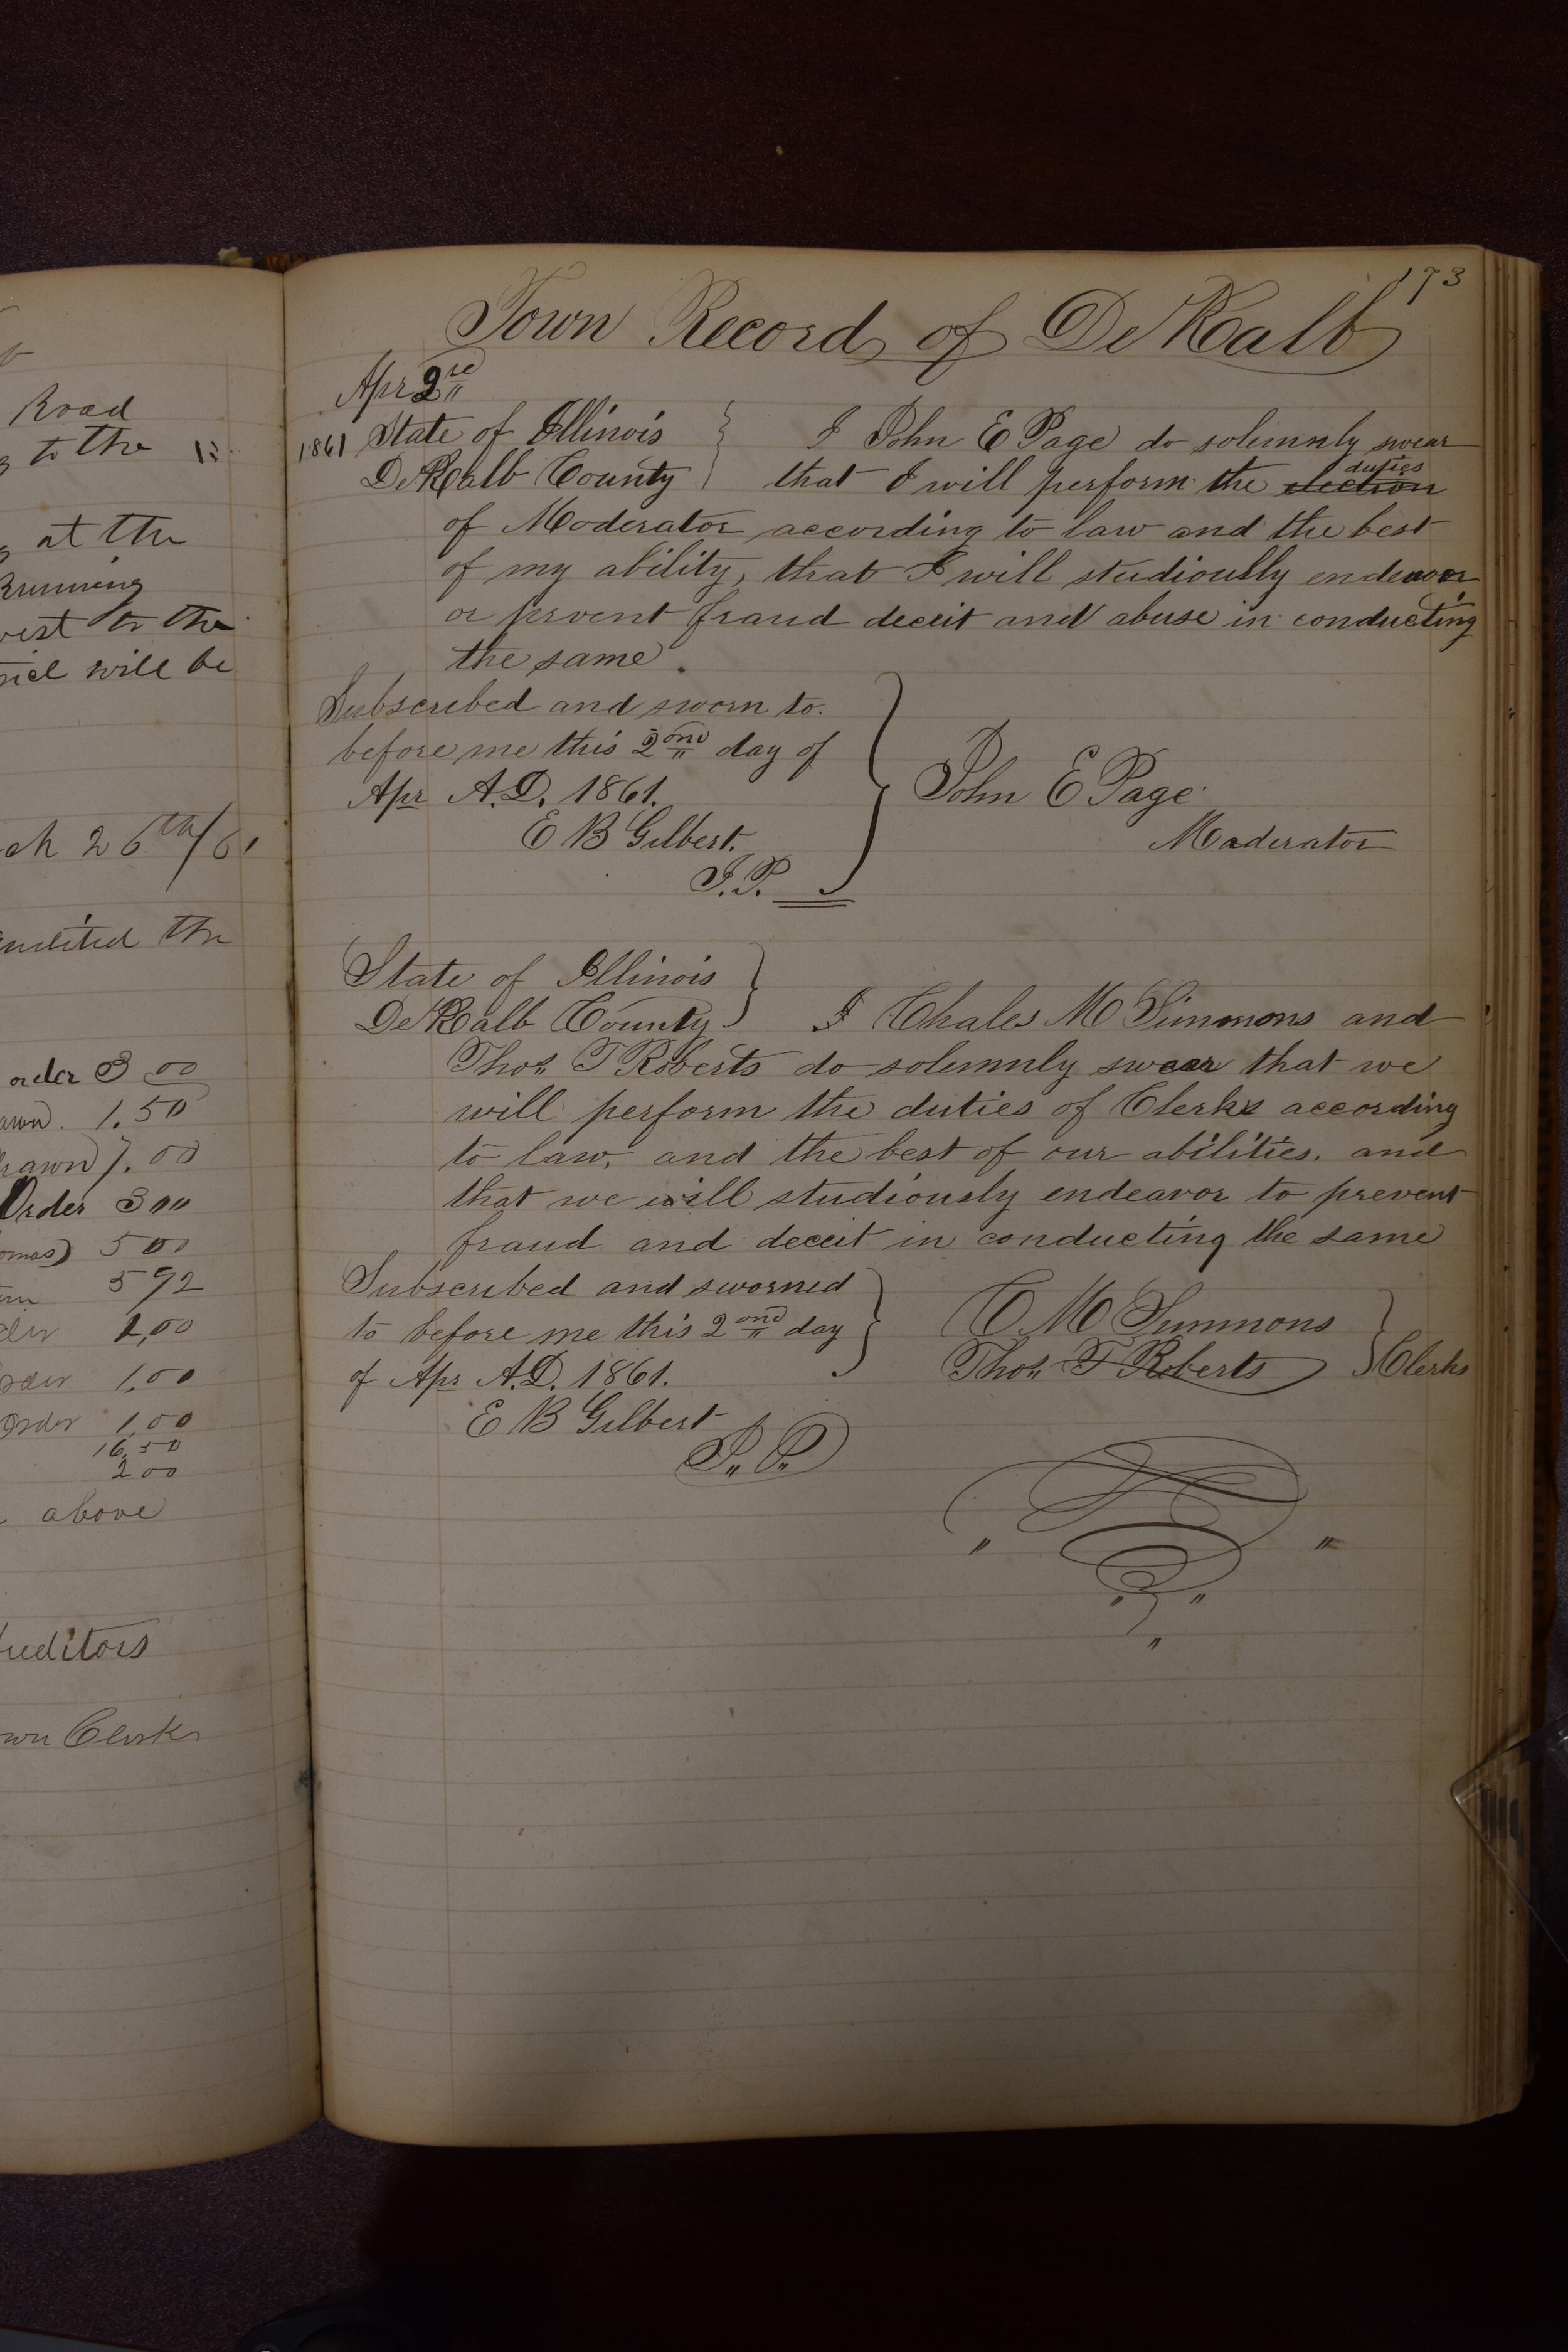 Road
to the
at the
Running
west to the
will be
26th/61
the
order 3 00
1.50
7.00
Order 3 00
5 00
5 92
1,00
1,00
1,00
16,50
2 00
above
Auditors
Clerk
173
Town Record of DeKalb
Apr 2
1861 State of Illinois } I John E Page do solemnly swear
DeKalb County } that I will perform the election duties
of Moderator according to law and the best
of my ability, that I will studiously endeavor
or prvent fraud deceit and abuse in conducting
the same.
Subscribed and sworn to.
before me this 2ond day of
Apr A.D. 1861.
E B Gilbert.
J.P.
John E Page
Moderator
State of Illinois }
DeKalb County } I Chales M Simmons and
Thos T Roberts do solemnly swear that we
will perform the duties of Clerks according
to law, and the best of our abilities. and
that we will studiously endeavor to prevent
fraud and deceit in conducting the same
Subscribed and sworned
to before me this 2ond day
of Apr A.D. 1861.
E B Gilbert
J.P.
C M Simmons
Thos T Roberts } Clerks